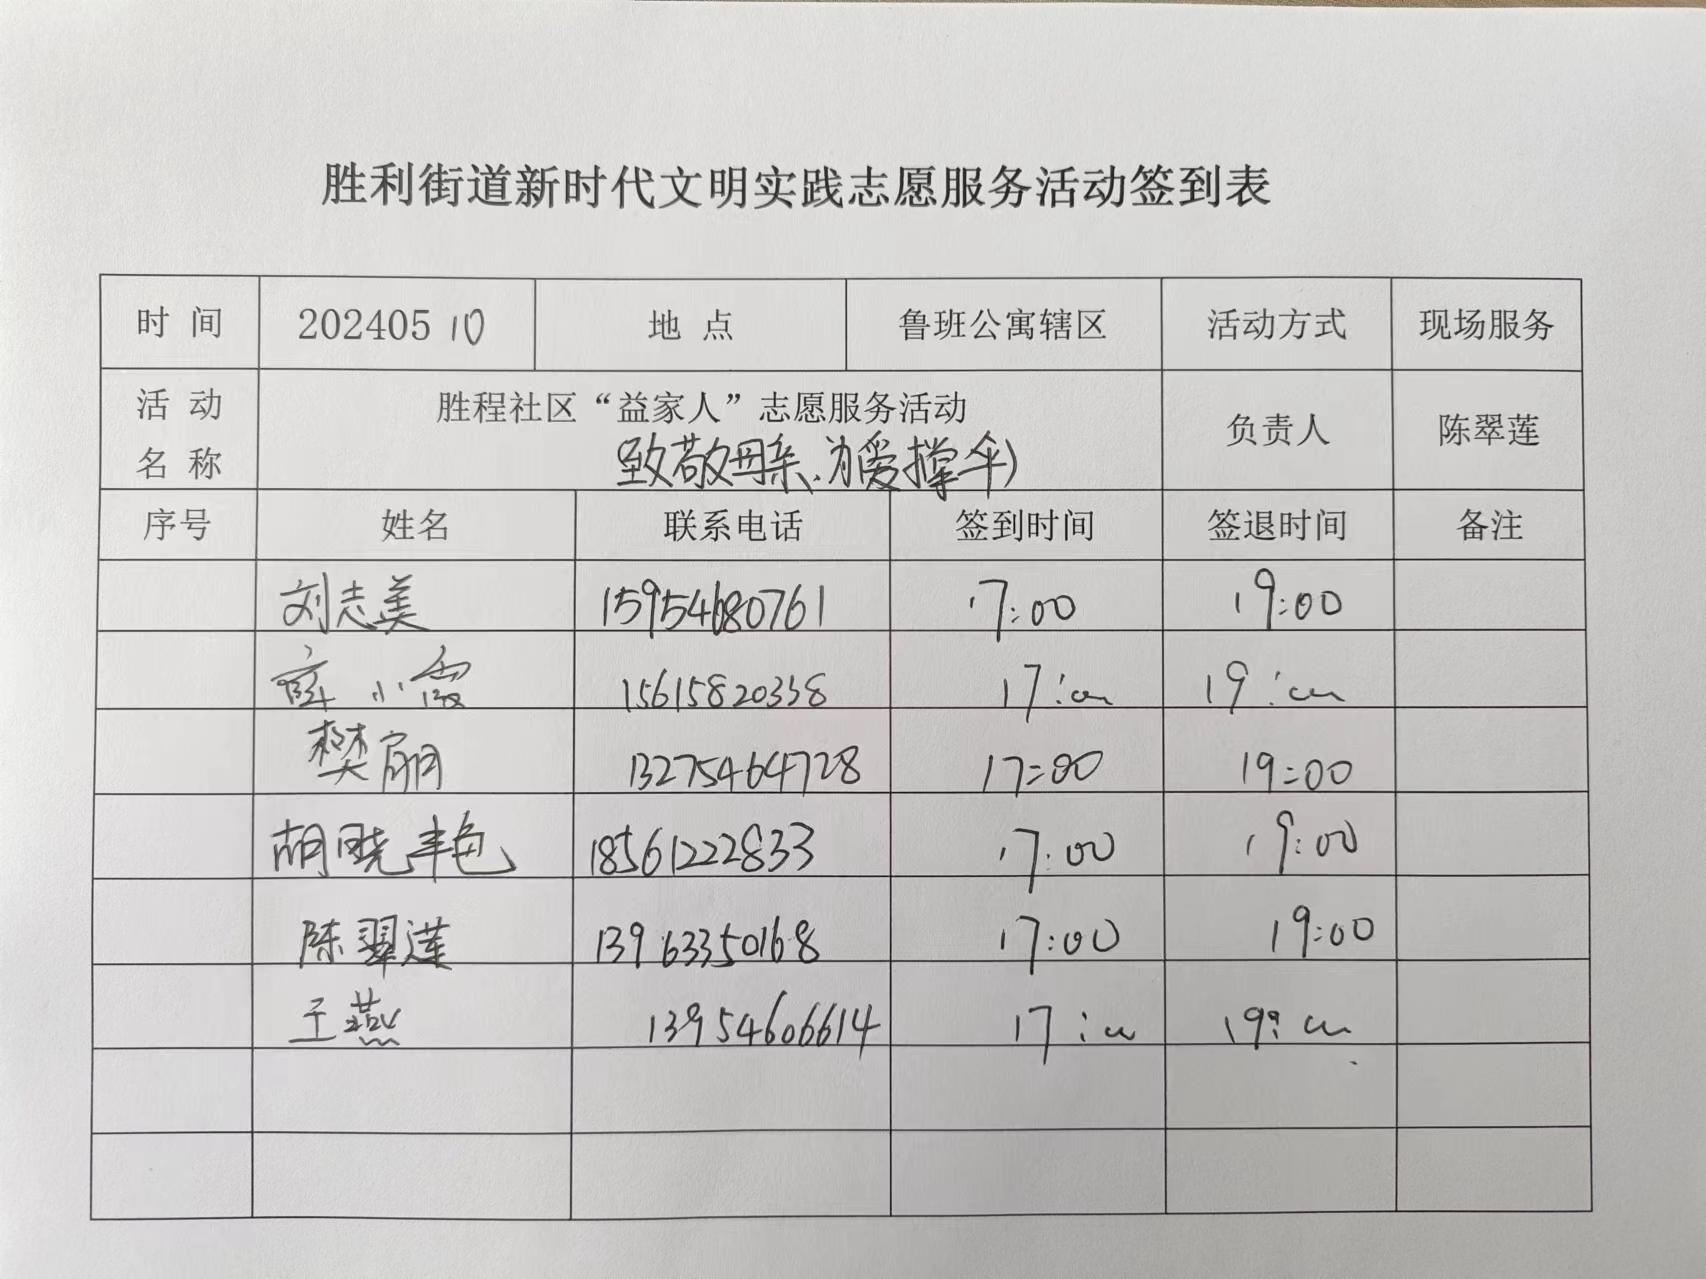 胜利街道新时代文明实践志愿服务活动签到表
时 间 20240510 地 点 鲁班公寓辖区 活动方式 现场服务
活 动 名 称 胜程社区“益家人”志愿服务活动 负责人 陈翠莲
致敬母亲.为爱撑伞)
序号 姓名 联系电话 签到时间 签退时间 备注
刘志美 15954680761 17:00 19:00
薛小霞 15615820338 17:00 19:00
樊丽 13275464728 17:00 19:00
胡晓艳 18561222833 17:00 19:00
陈翠莲 13963350168 17:00 19:00
王燕 13954606614 17:00 19:00